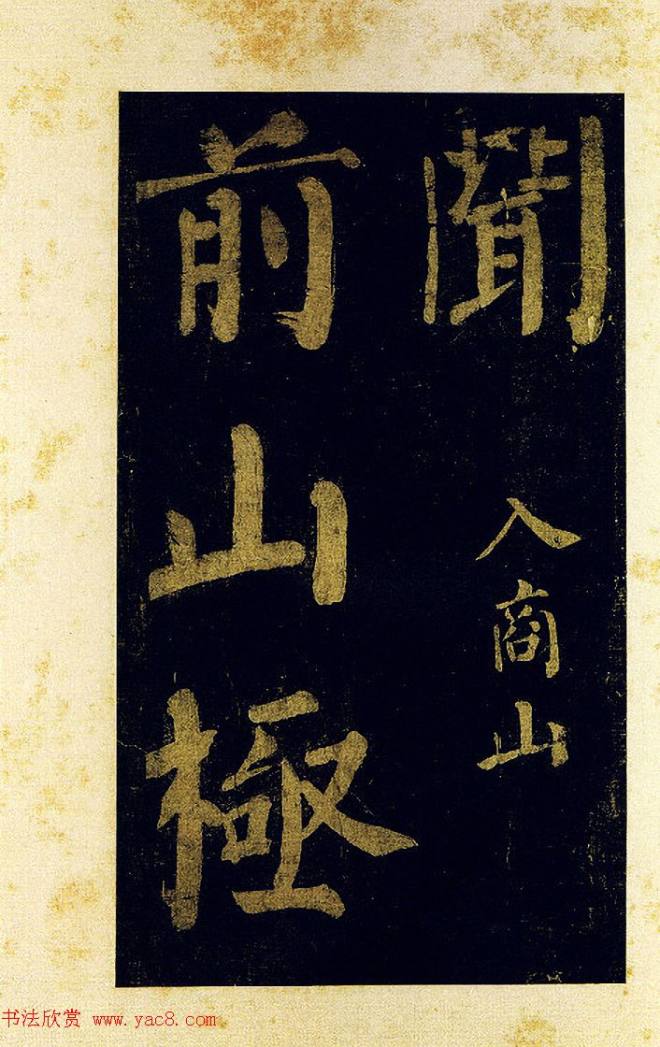 聞
入商山
前山極
书法欣赏 www.yac8.com